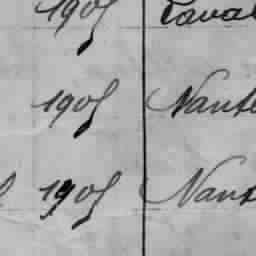 1905 Laval
1905 Nante
1905 Nant